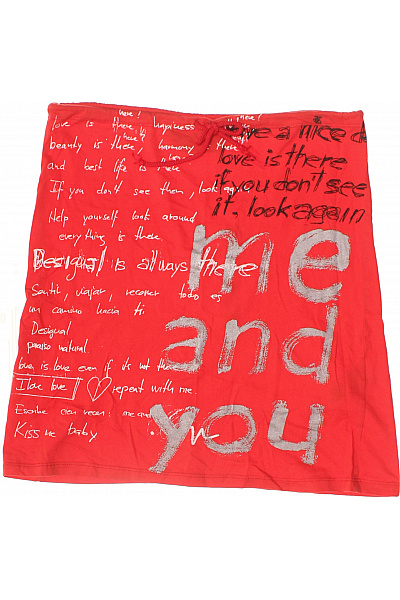 love is there happiness
beauty is there, harmony is there
and best life is there
If you don't see them, look again
Help yourself look around
everything is there
Desigual is always there
Sentir, viajar, recorrer todo es
un camino hacia ti
Desigual
paraiso natural.
love is love even if it's not there
I love love repeat with me
Kiss me baby
a nice d
love is there
if you don't see
it. look again
me
and
you